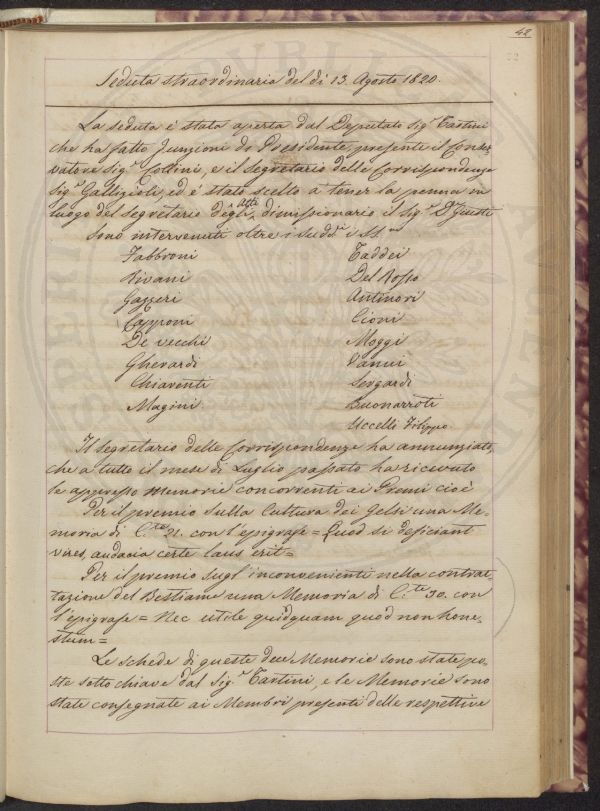 42
Seduta straordinaria del dì 13. Agosto 1820.
La seduta è stata aperta dal Deputato Sig.r Tartini
che ha fatto funzioni di Presidente, presente il Conser-
vatore Sig.r Collini, e il Segretario delle Corrispondenze
Sig.r Gallizioli, ed è stato scelto a tener la penna in
luogo del Segretario degli Atti, dimissionario il Sig.r D.r Giusti
Sono intervenuti oltre i Sudd.i i SS.ri
Fabbroni Taddei
Rivani Del Rosso
Gazzeri Antinori
Capponi Cioni
De Vecchi Moggi
Gherardi Vanni
Chiarenti Sergardi
Magini Buonarroti
Uccelli Filippo
Il Segretario delle Corrispondenze ha annunziato,
che a tutto il mese di Luglio passato ha ricevuto
le appresso Memorie concorrenti ai Premi cioè
Per il premio sulla Cultura dei Gelsi una Me-
moria di C.te 21. con l'epigrafe = Quod si deficiant
vires, audacia certe laus erit =
Per il premio sugl'inconvenienti nella contrat-
tazione del Bestiame una Memoria di C.te 30. con
l'epigrafe = Nec utile quidquam quod non hone-
stum =
Le schede di queste due Memorie sono state po-
ste sotto chiave dal Sig.r Tartini, e le Memorie sono
state consegnate ai Membri presenti delle respettive